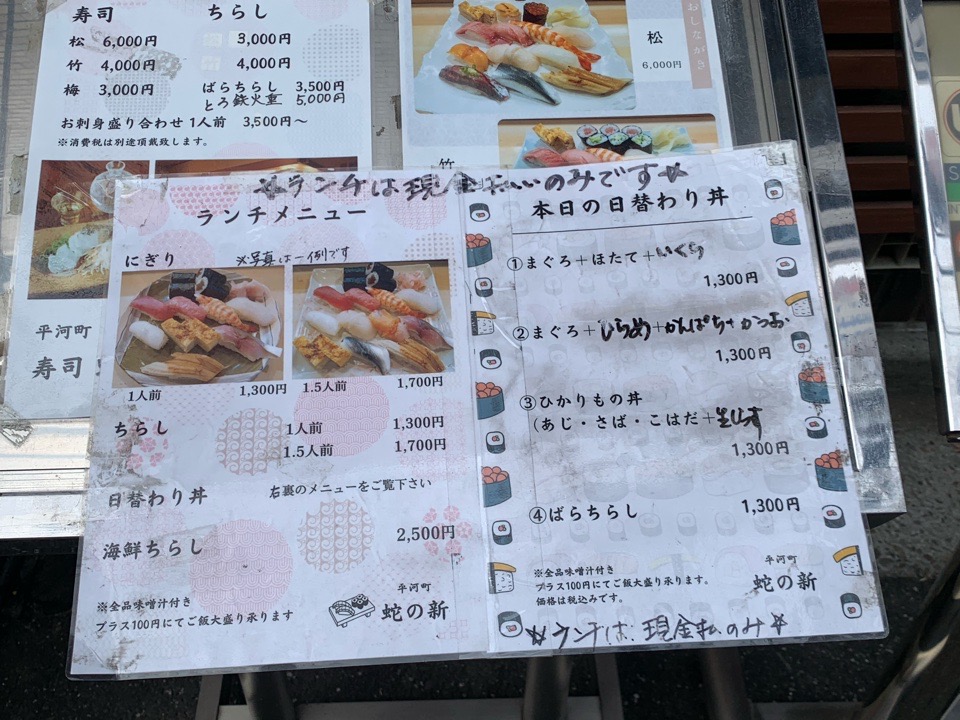 寿司
松 6,000円
竹 4,000円
梅 3,000円
ちらし
3,000円
4,000円
ばらちらし 3,500円
とろ鉄火重 5,000円
お刺身盛り合わせ 1人前 3,500円～
※消費税は別途頂戴致します。
平河町
寿司
おしながき
松
6,000円
竹
☆ランチは現金払いのみです☆
ランチメニュー
にぎり ※写真は一例です
1人前 1,300円
1.5人前 1,700円
ちらし 1人前 1,300円
1.5人前 1,700円
日替わり丼 右裏のメニューをご覧下さい
海鮮ちらし 2,500円
※全品味噌汁付き
プラス100円にてご飯大盛り承ります
平河町
蛇の新
本日の日替わり丼
①まぐろ＋ほたて＋いくら
1,300円
②まぐろ＋ひらめ＋かんぱち＋かつお
1,300円
③ひかりもの丼
(あじ・さば・こはだ＋生しらす
1,300円
④ばらちらし 1,300円
※全品味噌汁付き
プラス100円にてご飯大盛り承ります。
価格は税込みです。
平河町
蛇の新
☆ランチは、現金払のみ☆